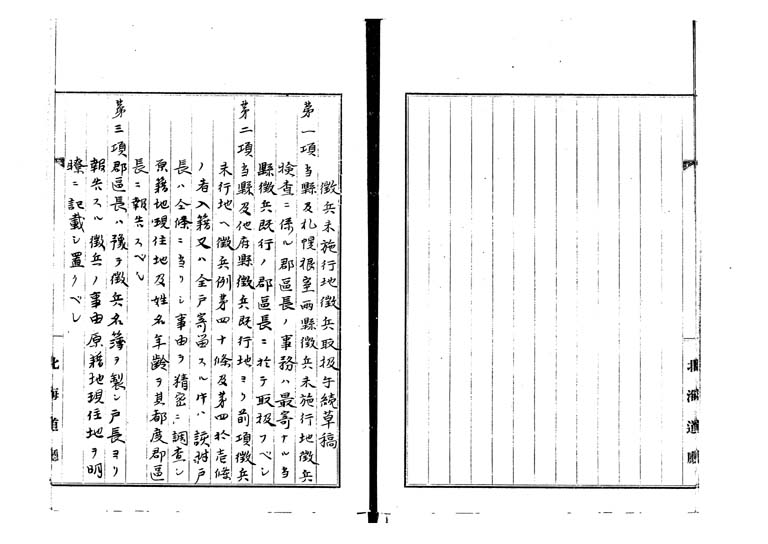 徴兵未施行地徴兵取扱手続草稿
第一項当縣及札幌根室両縣徴兵未施行地徴兵
検査ニ係ル郡區長ノ事務ハ最寄ナル当
縣徴兵既行ノ郡區長ニ於テ取扱フベシ
第二項当縣及他府縣徴兵既行地ヨリ前項徴兵
未行地ヘ徴兵例第四十條及第四拾壱條
ノ者入籍又ハ全戸寄留スル件ハ該村戸
長ハ全條ニ当リシ事由ヲ精密ニ調査シ
原籍地現住地及姓名年齢ヲ其都度郡區
長ニ報告スベシ
第三項郡區長ハ豫テ徴兵名簿ヲ製シ戸長ヨリ
報告スル徴兵ノ事由原籍地現住地ヲ明
瞭ニ記載シ置クベシ
北海道廳
北海道廳